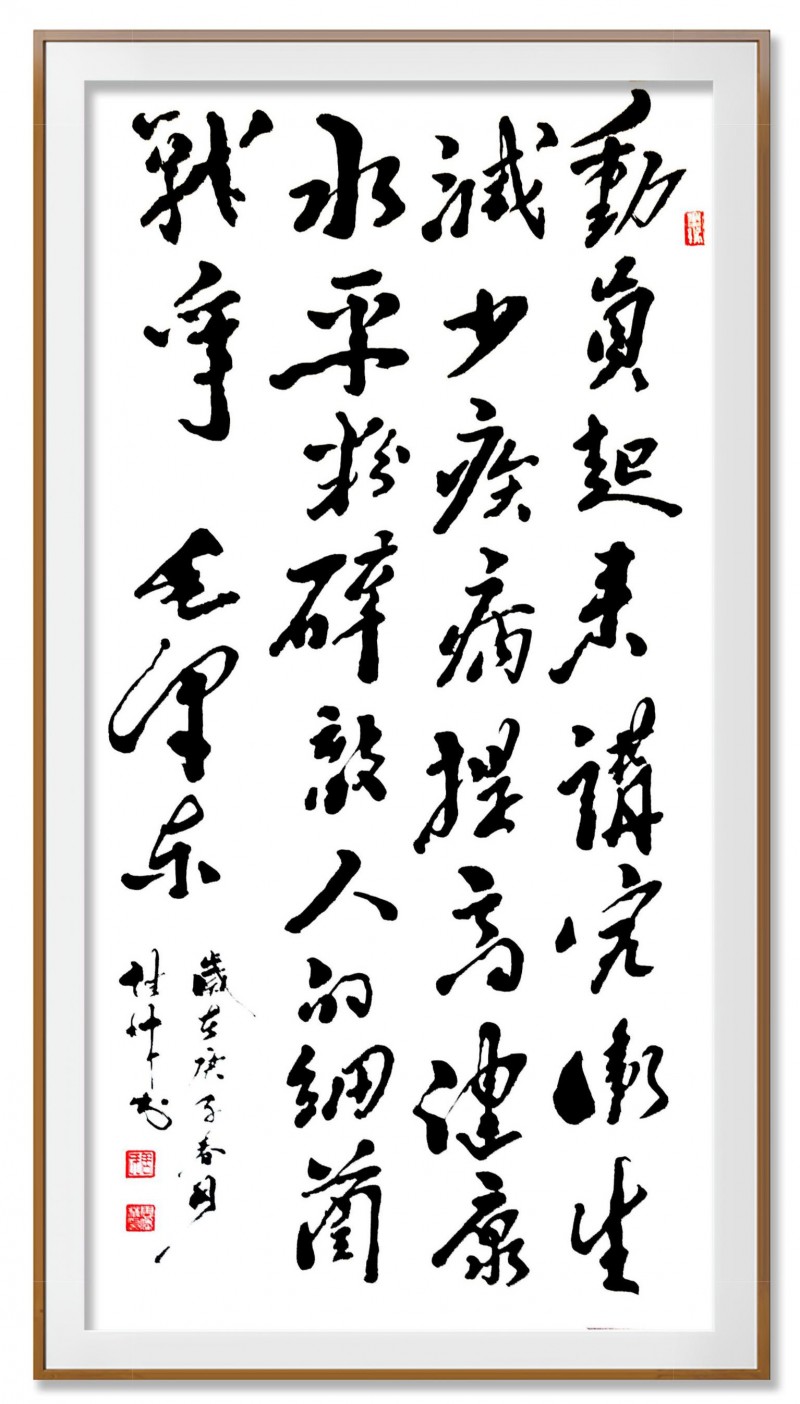 動員起来講究衛生
減少疾病提高健康
水平粉碎敵人的細菌
戰爭 毛澤东
歲在庚子春月